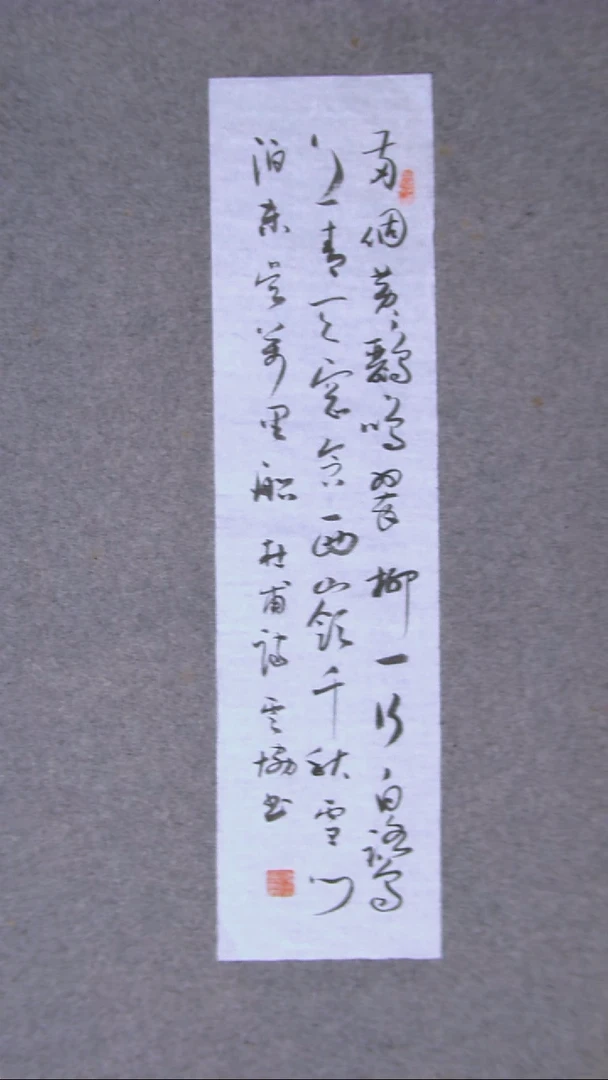 兩個黃鸝鳴翠柳一行白鷺
上青天窗含西嶺千秋雪門
泊東吳萬里船杜甫詩雲書